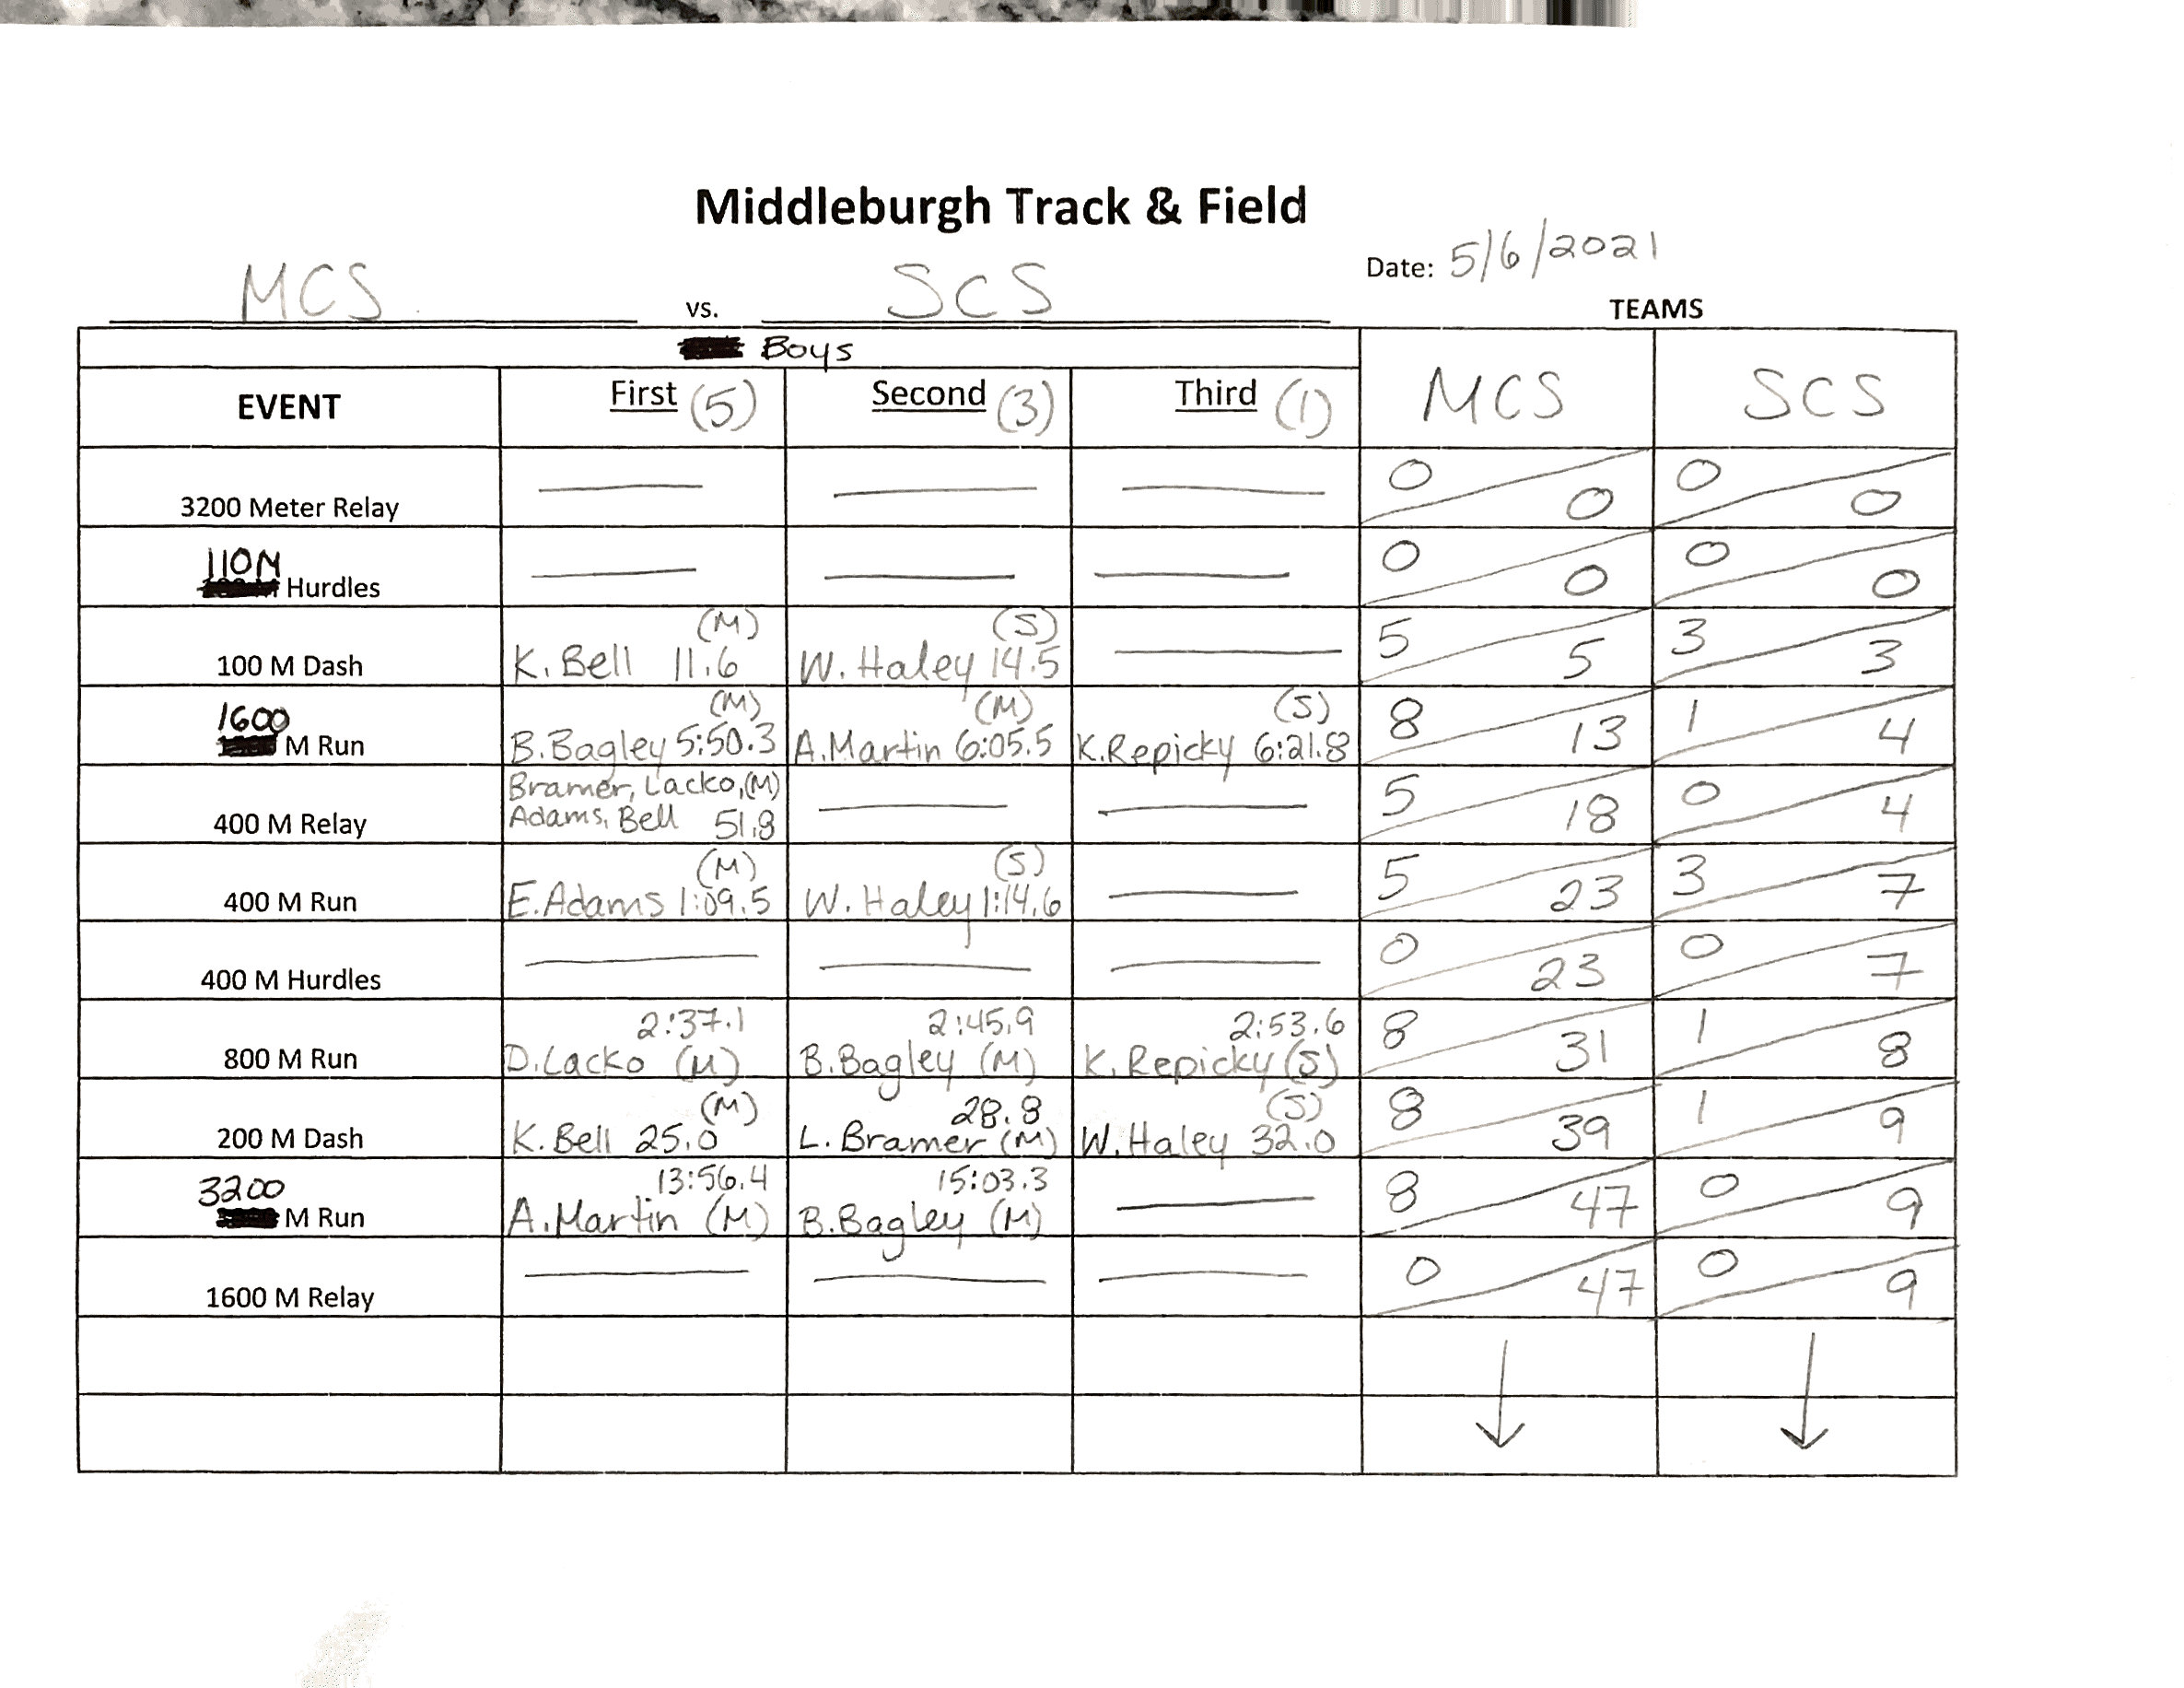 Middleburgh Track & Field
Date: 5/6/2021
MCS vs. SCS
TEAMS
Boys
MCS SCS
EVENT First (5) Second (3) Third (1)
3200 Meter Relay 0 0 0 0
110M
Hurdles 0 0 0 0
(M) (S)
100 M Dash K. Bell 11.6 W. Haley 14.5 5 5 3 3
1600 (M) (M) (S)
M Run B.Bagley 5:50.3 A.Martin 6:05.5 K.Repicky 6:21.8 8 13 1 4
Bramer, Lacko, (M)
400 M Relay Adams, Bell 51.8 5 18 0 4
(M) (S)
400 M Run E.Adams 1:09.5 W. Haley 1:14.6 5 23 3 7
400 M Hurdles 0 23 0 7
2:37.1 2:45.9 2:53.6
800 M Run D.Lacko (M) B.Bagley (M) K. Repicky (S) 8 31 1 8
(M) 28.8 (S)
200 M Dash K. Bell 25.0 L. Bramer (M) W. Haley 32.0 8 39 1 9
3200 13:56.4 15:03.3
M Run A.Martin (M) B.Bagley (M) 8 47 0 9
1600 M Relay 0 47 0 9